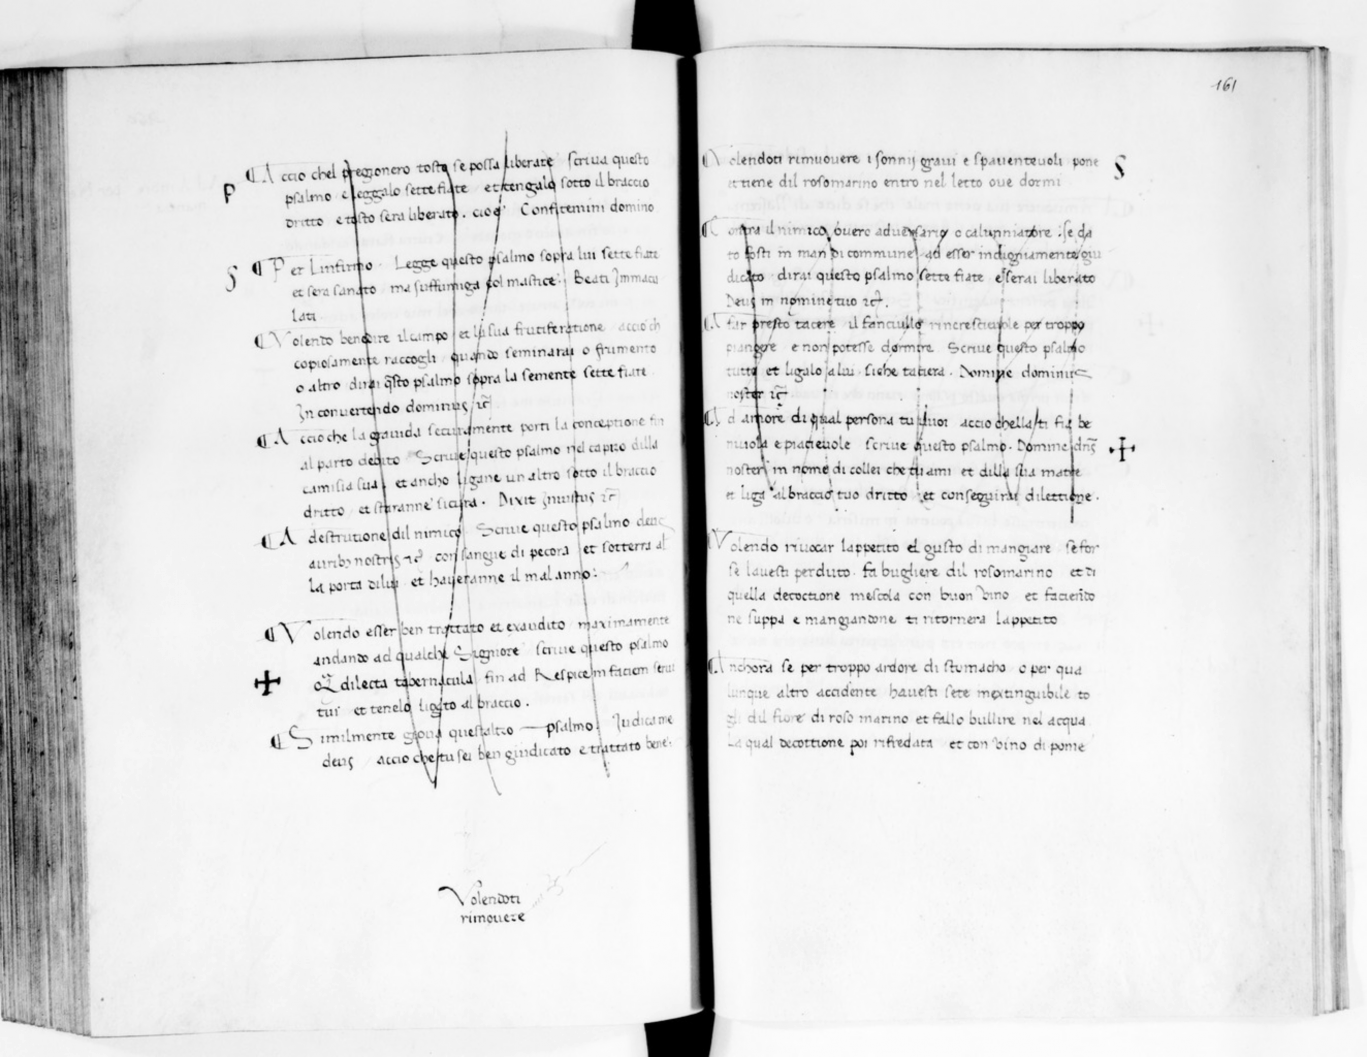 ¶ Accio chel preggionero tosto se possa liberare scriua questo
P
psalmo e leggalo sette fiate et tengalo sotto il braccio
dritto e tosto sera liberato. cioe Confitemini domino
¶ Per Linfirmo. Legge questo psalmo sopra lui sette fiate
S
et sera sanato ma suffumiga col mastice. Beati Immacu
lati
¶ Volendo benedire il campo et la sua frutiferatione accio ch
copiosamente raccogli quando seminarai o frumento
o altro dirai qsto psalmo sopra la semente sette fiate.
In conuertendo dominus &c
¶ Accio che la grauida securamente porti la conceptione fin
al parto debito Scriue questo psalmo nel capizo dilla
camisia sua et ancho ligane un altro sotto il braccio
dritto et staranne sicura. Dixit Iniustus &c
¶ A destrutione dil nimico Scriue questo psalmo deus
auribꝫ nostris &c con sangue di pecora et sotterra al
la porta di lui et haueranne il mal anno:
¶ Volendo esser ben trattato et exaudito maximamente
andando ad qualche Signore scriue questo psalmo
✠
Q dilecta tabernacula fin ad Respice in faciem serui
tui et tenelo ligato al braccio.
¶ Similmente gioua questaltro — psalmo. Judica me
deus accio che tu sei ben giudicato e trattato bene.
Volendoti
rimouere
161
Volendoti rimuouere i sonnij graui e spauenteuoli pone
S
et tiene dil rosomarino entro nel letto oue dormi
¶ Contra il nimico, ouero aduersario o calunniatore: se da
to fosti in man di commune ad esser indignamente giu
dicato dirai questo psalmo sette fiate e serai liberato
Deus in nomine tuo &c.
¶ A far presto tacere il fanciullo rincresceuole per troppo
piangere e non potesse dormire. Scriue questo psalmo
tutto et ligalo a lui siche tacera. Domine dominus
noster &c
¶ Ad amore di qual persona tu vuoi accio chella ti sia be
niuola e piaceuole scriue questo psalmo. Domine dns
✠
noster in nome di collei che tu ami et dilla sua matre
et liga al braccio tuo dritto et conseguirai dilettione.
Volendo riuocar lappetito el gusto di mangiare se for
se lauesti perduto. fa bugliere dil rosomarino et di
quella decoctione mescola con buon vino et faciendo
ne suppa e mangiandone ti ritornera lappetito
¶ Anchora se per troppo ardore di stomacho o per qua
lunque altro accidente hauesti sete inextinguibile to
gli dil fiore di roso marino et fallo bullire nel acqua
La qual decottione poi rifredata et con vino di pome